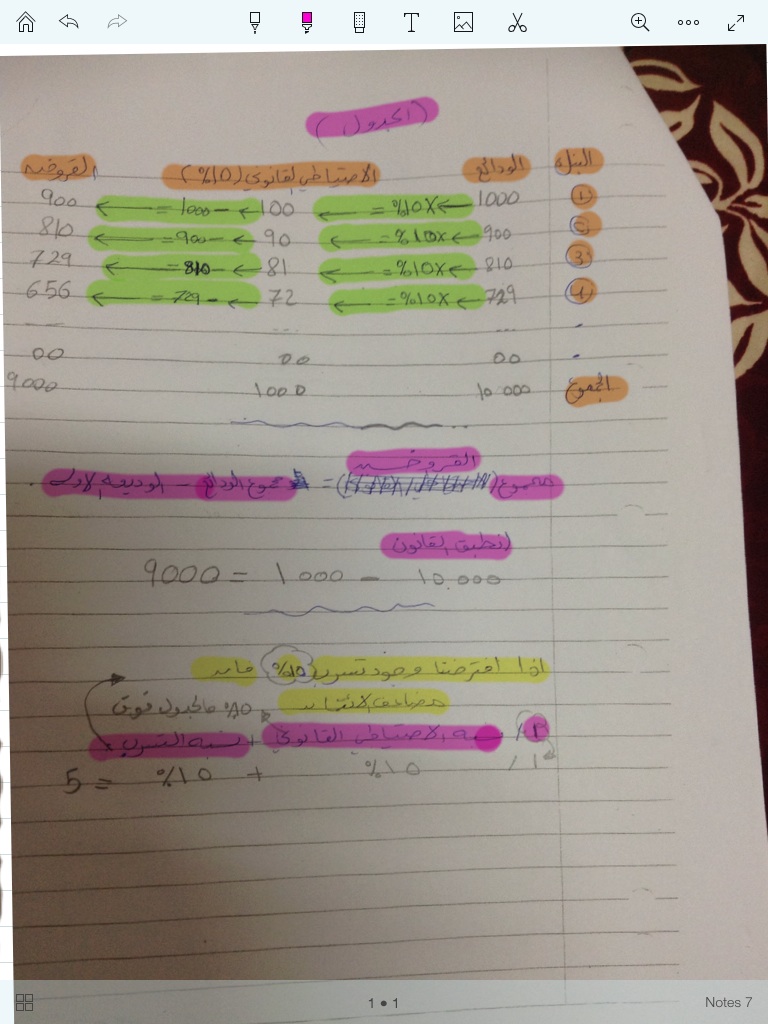 (الجدول)
البنك الودائع الاحتياطي لقانوني (10%) القروض
1 1000 ← 10%X = ← 100 ← - 1000 = ← 900
2 900 ← 10%X = ← 90 ← - 900 = ← 810
3 810 ← 10%X = ← 81 ← - 810 = ← 729
4 729 ← 10%X = ← 72 ← - 729 = ← 656
. ... ... ...
. 00 00 00
المجموع 10000 1000 9000
القروض
مجموع ( ) = مجموع الودائع - الوديعه الاولى .
انطبق القانون
10.000 - 1000 = 9000
اذا افترضنا وجود تسرب (10%) فان
مضاعف الائتمان
1 / نسبه الاحتياطي القانوني + نسبه التسرب =
1 / 10% + 10% = 5
1 • 1
Notes 7